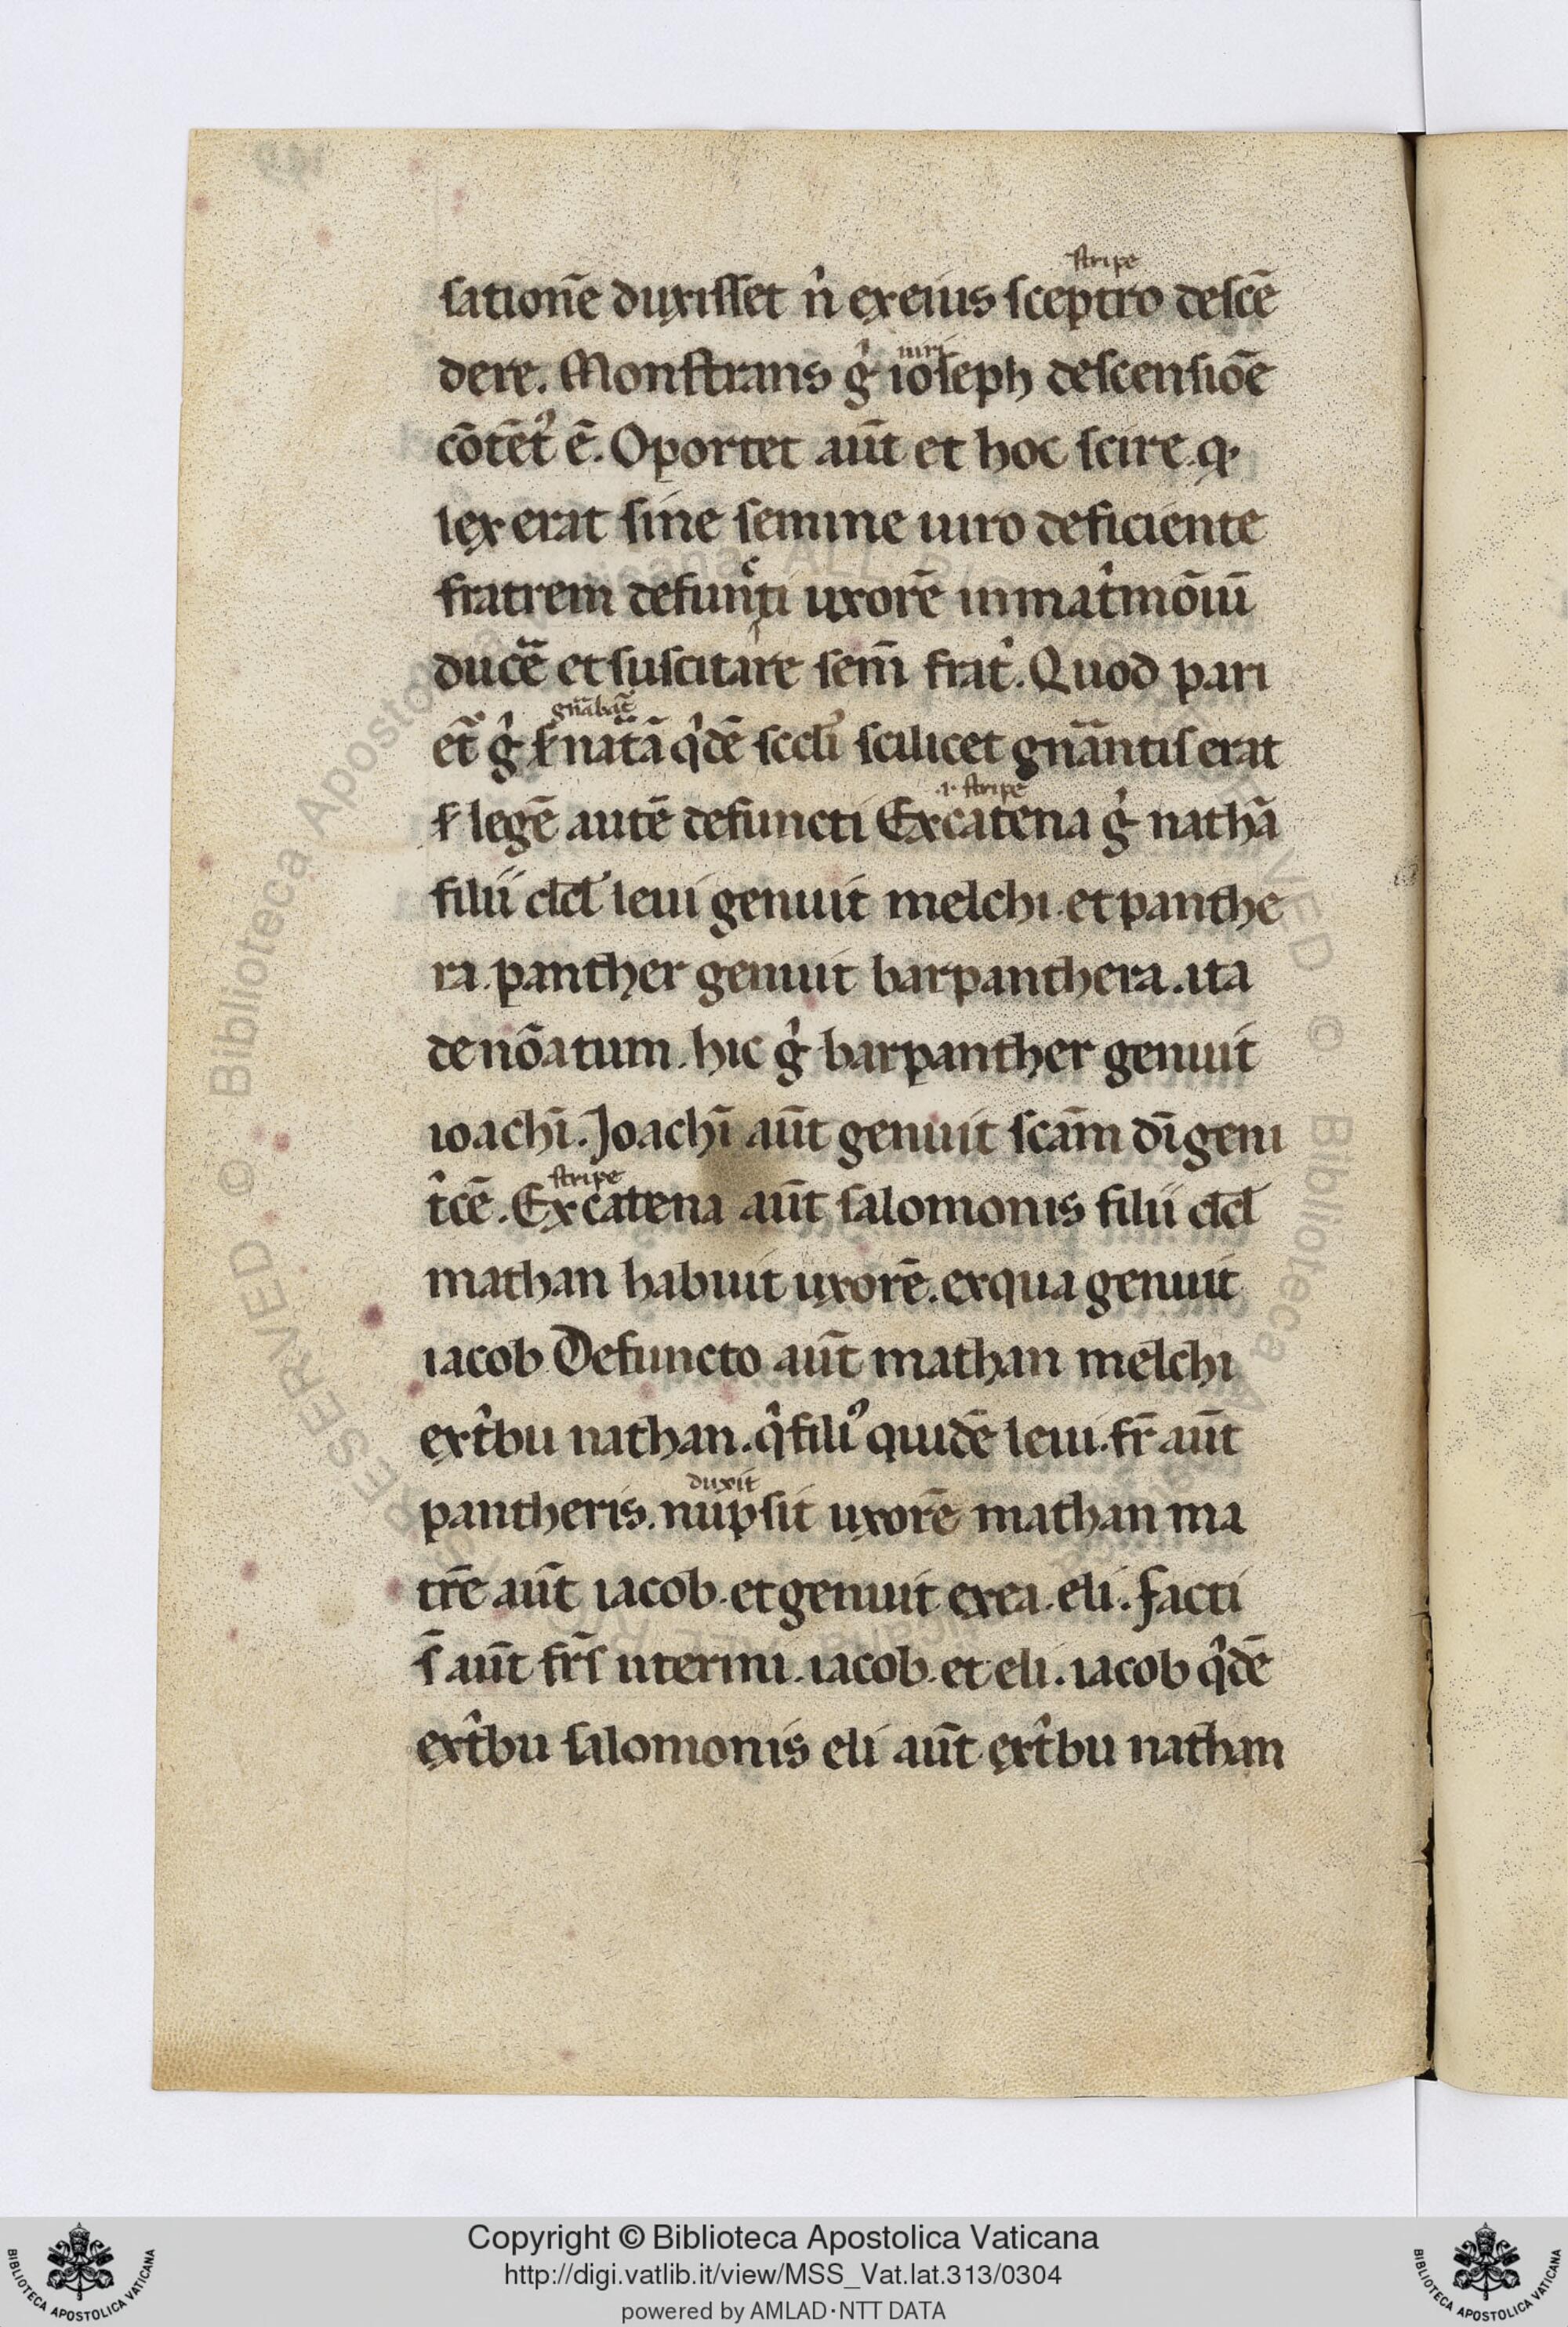 stirpe
sationē duxisset n̄ ex eius sceptro descē
uiri
dere. Monstrans gͥ ioseph descensiōe
cōtēt᾽ ē. Oportet aūt et hoc scire. q
lex erat sine semine uiro deficiente
fratrem defuncti uxorē in matͥmōiū
ducē et suscitare sem̄ fratͥ. Quod pari
gn̄abat᾽
et᾽ gͥ nat᾽ā qͥdē scdi᾽ scilicet gn̄āntis erat
.i. stirpe
legē autē defuncti Ex catena gͥ nathā
filii dd̄ leui genuit melchi. et panthe
ra. panther genuit barpanthera. ita
denōatum. hic gͥ barpanther genuit
ioachī. Joachī aūt genuit scām dī geni
stirpe
tͥcē. Ex catena aūt salomonis filii dd̄
mathan habuit uxorē. ex qua genuit
iacob Defuncto aūt mathan melchi
ex tͥbu nathan. qͥ fili᾽ quidē leui. fr̄ aūt
duxit
pantheris. nupsit uxorē mathan ma
trē aūt iacob. et genuit ex ea. eli. facti
s̄ aūt fr̄s uterini. iacob. et eli. iacob qͥdē
ex tͥbu salomonis eli aūt ex tͥbu nathan
Copyright © Biblioteca Apostolica Vaticana
http://digi.vatlib.it/view/MSS_Vat.lat.313/0304
powered by AMLAD·NTT DATA
BIBLIOTECA APOSTOLICA VATICANA
BIBLIOTECA APOSTOLICA VATICANA